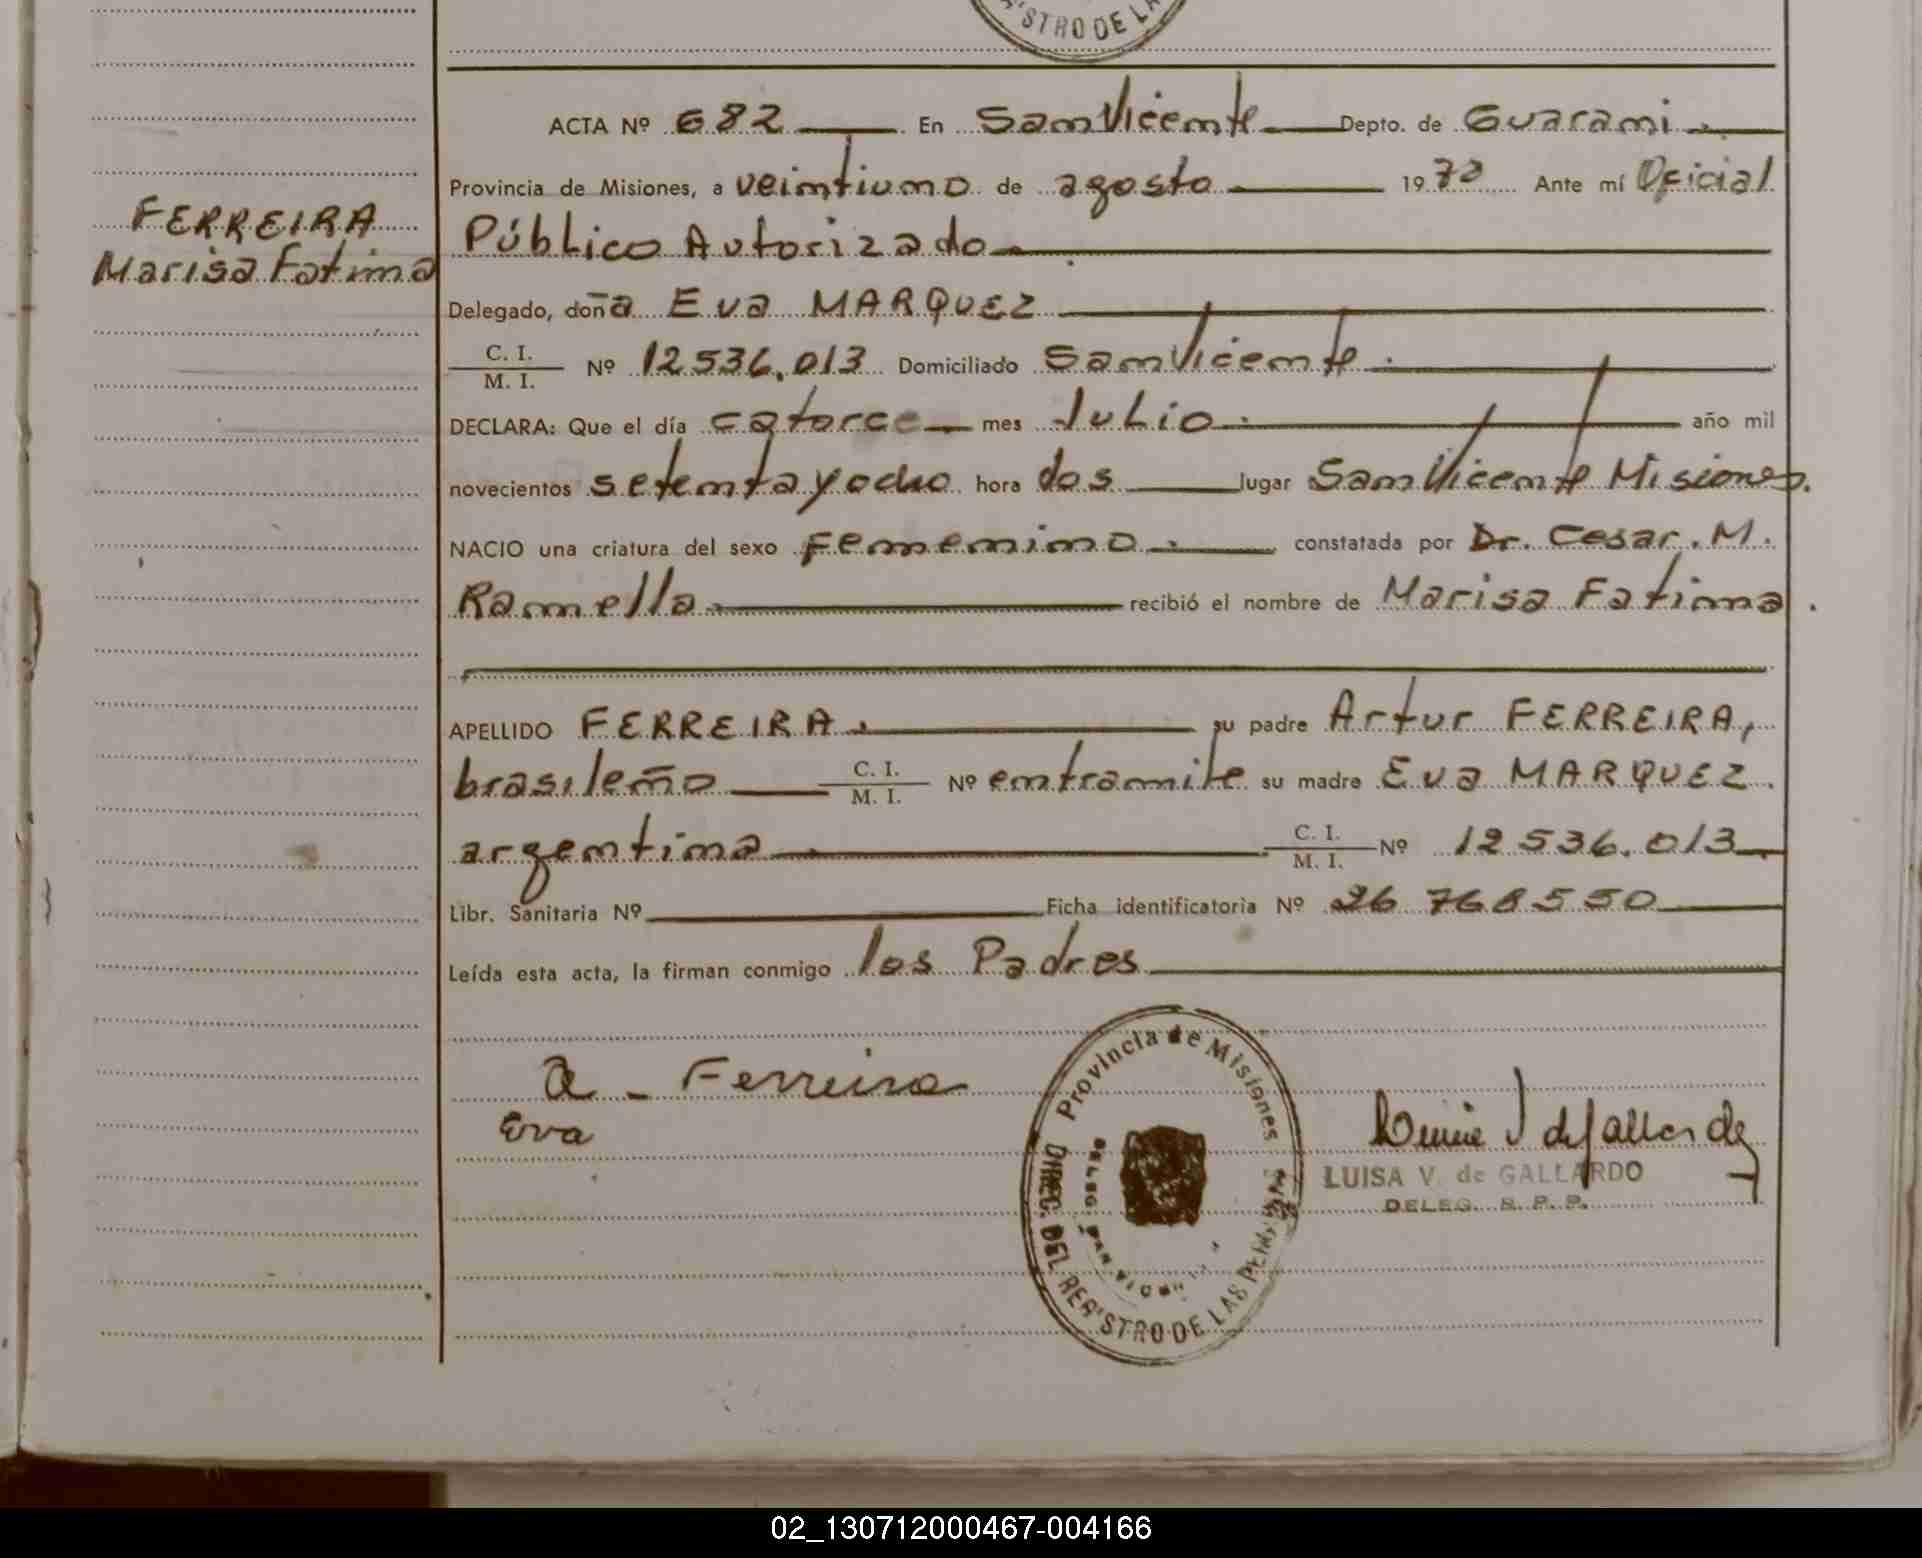 ISTRO DE LA
ACTA Nº 682 En San Vicente Depto. de Guarani
Provincia de Misiones, a veintiuno de agosto 19 Ante mí Oficial
Público Autorizado
FERREIRA
Marisa Fatima
Delegado, doña Eva MARQUEZ
C. I.
M. I. Nº 12536.013 Domiciliado San Vicente.
DECLARA: Que el día catorce mes Julio año mil
novecientos setentayocho hora dos lugar San Vicente Misiones.
NACIO una criatura del sexo Femenino constatada por Dr. Cesar. M.
Ramella recibió el nombre de Marisa Fatima.
APELLIDO FERREIRA su padre Artur FERREIRA,
brasileño C. I.
M. I. Nº entramite su madre Eva MARQUEZ.
argentina C. I.
M. I. Nº 12536.013
Libr. Sanitaria Nº Ficha identificatoria Nº 26 768550
Leída esta acta, la firman conmigo los Padres
A - Ferreira
Eva
Provincia de Misiones
DIREC. DEL REGISTRO DE LAS
DELEG.
LUISA V. de GALLARDO
DELEG. R. P. P.
02_130712000467-004166